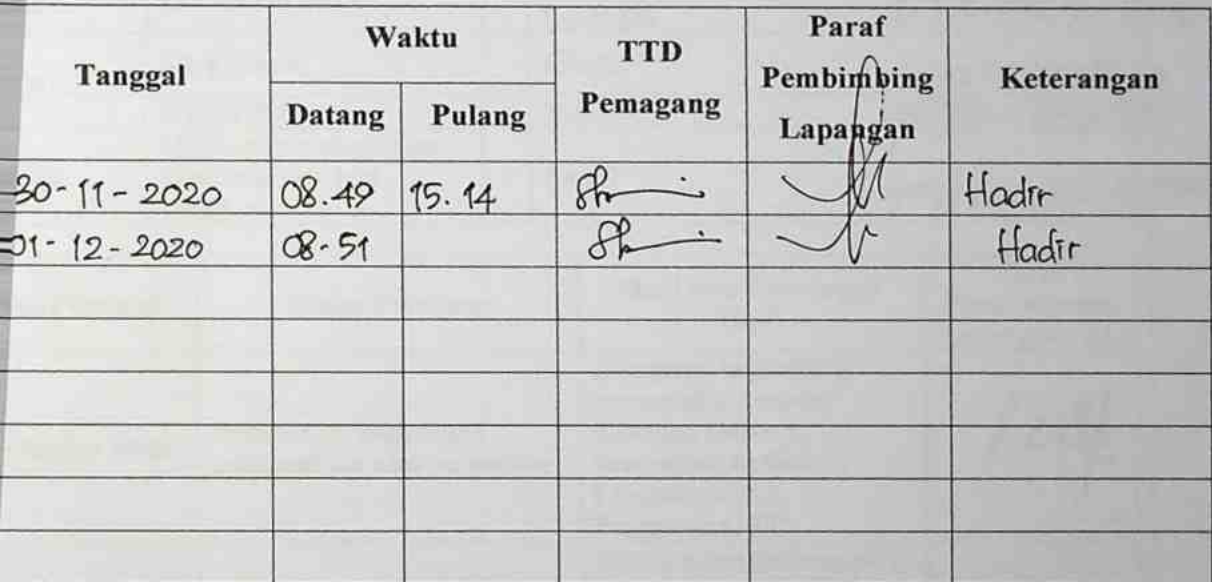 Tanggal
Waktu
Datang Pulang
TTD
Pemagang
Paraf
Pembimbing
Lapangan
Keterangan
30-11-2020 08.49 15.14 Hadir
01-12-2020 08-51 Hadir